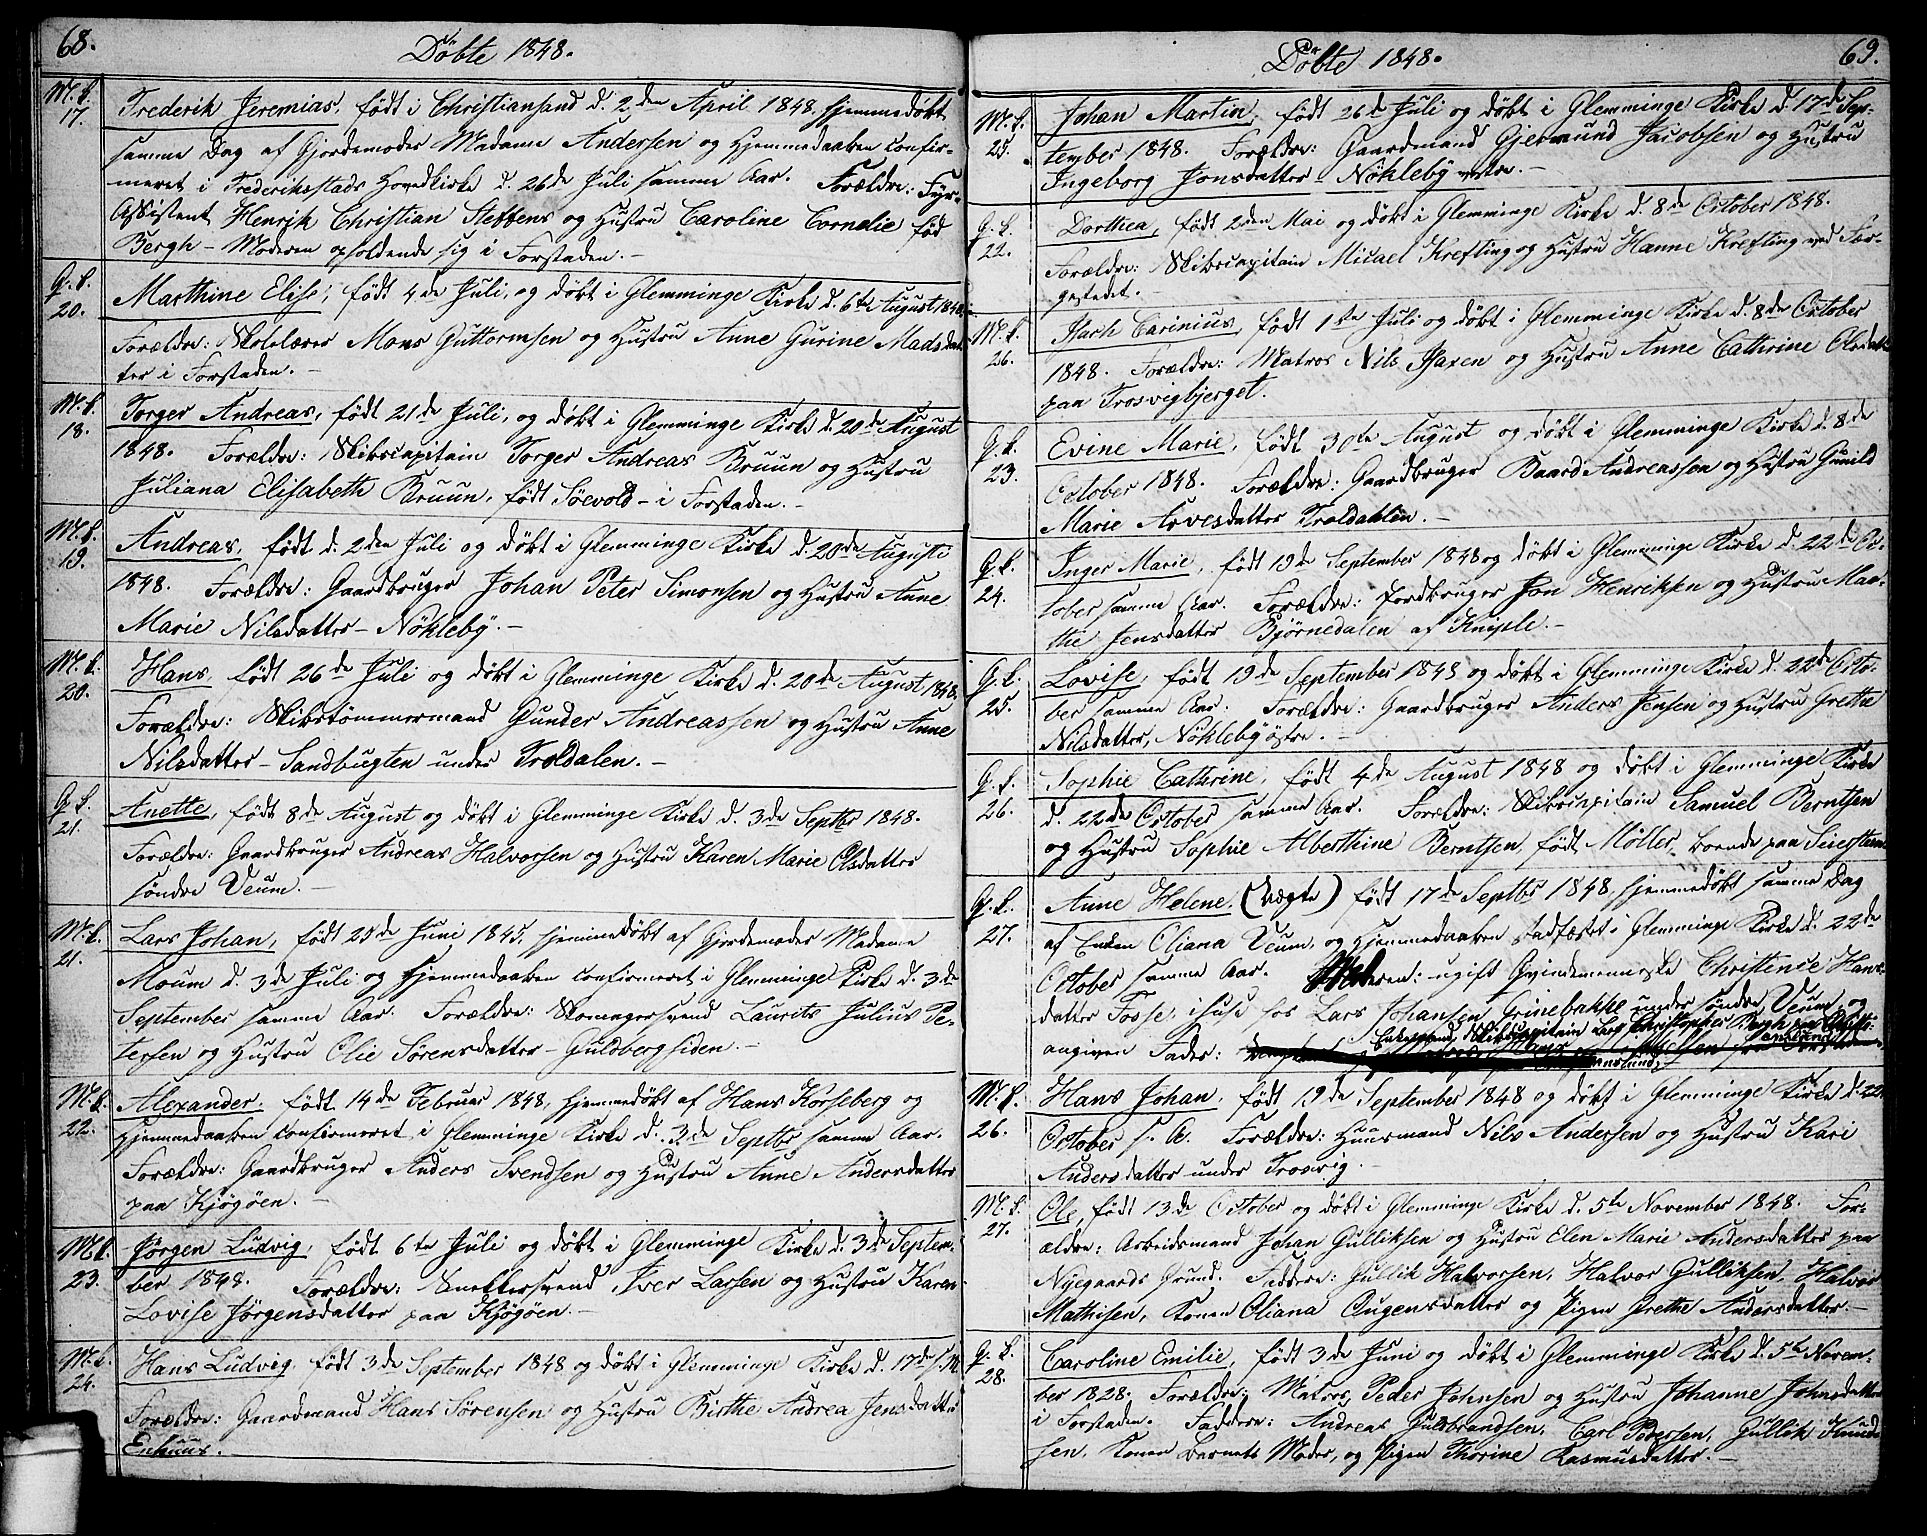 68.
Döbte 1848.
M. k.
17.
Frederik Jeremias, födt i Christiansand d. 2den April 1848, hjemmedöbt
samme Dag af Gjordemoder Madame Andersen og Hjemmedaaben confir-
meret i Frederiksstads Hovedkirke d. 26de Juli samme Aar. Forældre: Fyr-
Assistent Henrik Christian Steffens og Hustru Caroline Cornelie född
Bergh - Moderen opholdende sig i Forstaden. -
Q. k.
20.
Marthine Elise, födt 4de Juli, og döbt i Glemminge Kirke d. 6te August 1848.
Forældre: Skolelærer Mons Guttormsen og Hustru Anne Gurine Madsdat-
ter i Forstaden. -
M. k.
18.
Torger Andreas, födt 21de Juli, og döbt i Glemminge Kirke d. 20de August
1848. Forældre: Skibscapitain Torger Andreas Bruun og Hustru
Juliana Elisabeth Bruun, födt Söevold - i Forstaden. -
M. k.
19.
Andreas, födt d. 2den Juli og döbt i Glemminge Kirke d. 20de August
1848. Forældre: Gaardbruger Johan Peter Simonsen og Hustru Anne
Marie Nilsdatter - Nökleby. -
M. k.
20.
Hans, födt 26de Juli og döbt i Glemminge Kirke d. 20de August 1848.
Forældre: Skibstömmermand Gunder Andreassen og Hustru Anne
Nilsdatter - Sandbugten under Troldalen. -
Q. k.
21.
Anette, födt 8de August og döbt i Glemminge Kirke d. 3de Septbr 1848.
Forældre: Gaardbruger Andreas Halvorsen og Hustru Karen Marie Olsdatter
söndre Veum. -
M. k.
21.
Lars Johan, födt 25de Juni 1845, hjemmedöbt af Gjordemoder Madame
Moum d. 3de Juli og Hjemmedaaben confirmeret i Glemminge Kirke d. 3de
September samme Aar. Forældre: Skomagersvend Laurits Julius Pe-
tersen og Hustru Olie Sörensdatter - Guldbergsiden. -
M. k.
22.
Alexander, födt 14de Februar 1848, hjemmedöbt af Hans Korseberg og
Hjemmedaaben confirmeret i Glemminge Kirke d. 3de Septbr samme Aar.
Forældre: Gaardbruger Anders Svendsen og Hustru Anne Andersdatter
paa Kjögöen. -
M. k.
23.
Jörgen Ludvig, födt 6te Juli og döbt i Glemminge Kirke d. 3de Septem-
ber 1848. Forældre: Snekkersvend Iver Larsen og Hustru Karen
Lovise Jörgensdatter paa Kjögöen. -
M. k.
24.
Hans Ludvig, födt 3de September 1848 og döbt i Glemminge Kirke d. 17de s. M.
Forældre: Gaardmand Hans Sörensen og Hustru Birthe Andrea Jensdatter
Enhuus. -
Döbte 1848.
69.
M. k.
25.
Johan Martin, födt 26de Juli og döbt i Glemminge Kirke d. 17de Sep-
tember 1848. Forældre: Gaardmand Gjermund Jacobsen og Hustru
Ingeborg Jonsdatter - Nökleby vestre. -
Q. k.
22.
Dorthea, födt 2den Mai og döbt i Glemminge Kirke d. 8de October 1848.
Forældre: Skibscapitain Micael Krefting og Hustru Hanne Krefting ved Fær-
gestedet.
M. k.
26.
Carinius, födt 1ste Juli og döbt i Glemminge Kirke d. 8de October
1848. Forældre: Matros Nils og Hustru Anne Cathrine Olsdatter
paa Trosvigbjerget.
Q. k.
23.
Evine Marie, födt 30te August og döbt i Glemminge Kirke d. 8de
October 1848. Forældre: Gaardbruger Baard Andreassen og Hustru Gunild
Marie Arvesdatter Troldahlen. -
Q. k.
24.
Inger Marie, födt 19de September 1848 og döbt i Glemminge Kirke d. 22de Oc-
tober samme Aar. Forældre: Jordbruger Jon Henriksen og Hustru Mar-
the Jensdatter Björnedalen af Kniple. -
Q. k.
25.
Lovise, födt 19de September 1848 og döbt i Glemminge Kirke d. 22de Octo-
ber samme Aar. Forældre: Gaardbruger Anders Jensen og Hustru Grethe
Nilsdatter, Nökleby östre. -
Q. k.
26.
Sophie Cathrine, födt 4de August 1848 og döbt i Glemminge Kirke
d. 22de October samme Aar. Forældre: Skibscapitain Samuel Berntsen
og Hustru Sophie Alberthine Berntsen, födt Möller, boende paa
Q. k.
27.
Anne Helene, (Uægte) födt 17de Septbr 1848, hjemmedöbt samme Dag
af Enken Oliana Veum, og Hjemmedaaben stadfæstet i Glemminge Kirke d. 22de
October samme Aar. Moderen: ugift Qvindemenneske Christence Hans-
datter Fosse, i huse hos Lars Johansen Grinebakke under söndre Veum og
Enkemand Skibscapitain Lars Christopher Bergh
angiven Fader:
M. k.
26.
Hans Johan, födt 19de September 1848 og döbt i Glemminge Kirke d. 22
October s. A. Forældre: Huusmand Nils Andersen og Hustru Kari
Andersdatter under Trosvig. -
M. k.
27.
Ole, födt 13de October og döbt i Glemminge Kirke d. 5te November 1848. For-
ældre: Arbeidsmand Johan Gulliksen og Hustru Elen Marie Andersdatter paa
Nygaards Grund. Faddere: Gullik Halvorsen, Halvor Gulliksen, Halvor
Mathisen, Konen Oliana Augensdatter og Pigen Grethe Andersdatter. -
Q. k.
28.
Caroline Emilie, födt 3de Juni og döbt i Glemminge Kirke d. 5te Novem-
ber 1828. Forældre: Matros Peder Johnsen og Hustru Johanne Johnsdatter
i Forstaden. Faddere: Andreas Guldbrandsen, Carl Pedersen, Gullik Knud-
sen, Konen Barnets Moder, og Pigen Thorine Rasmusdatter. -